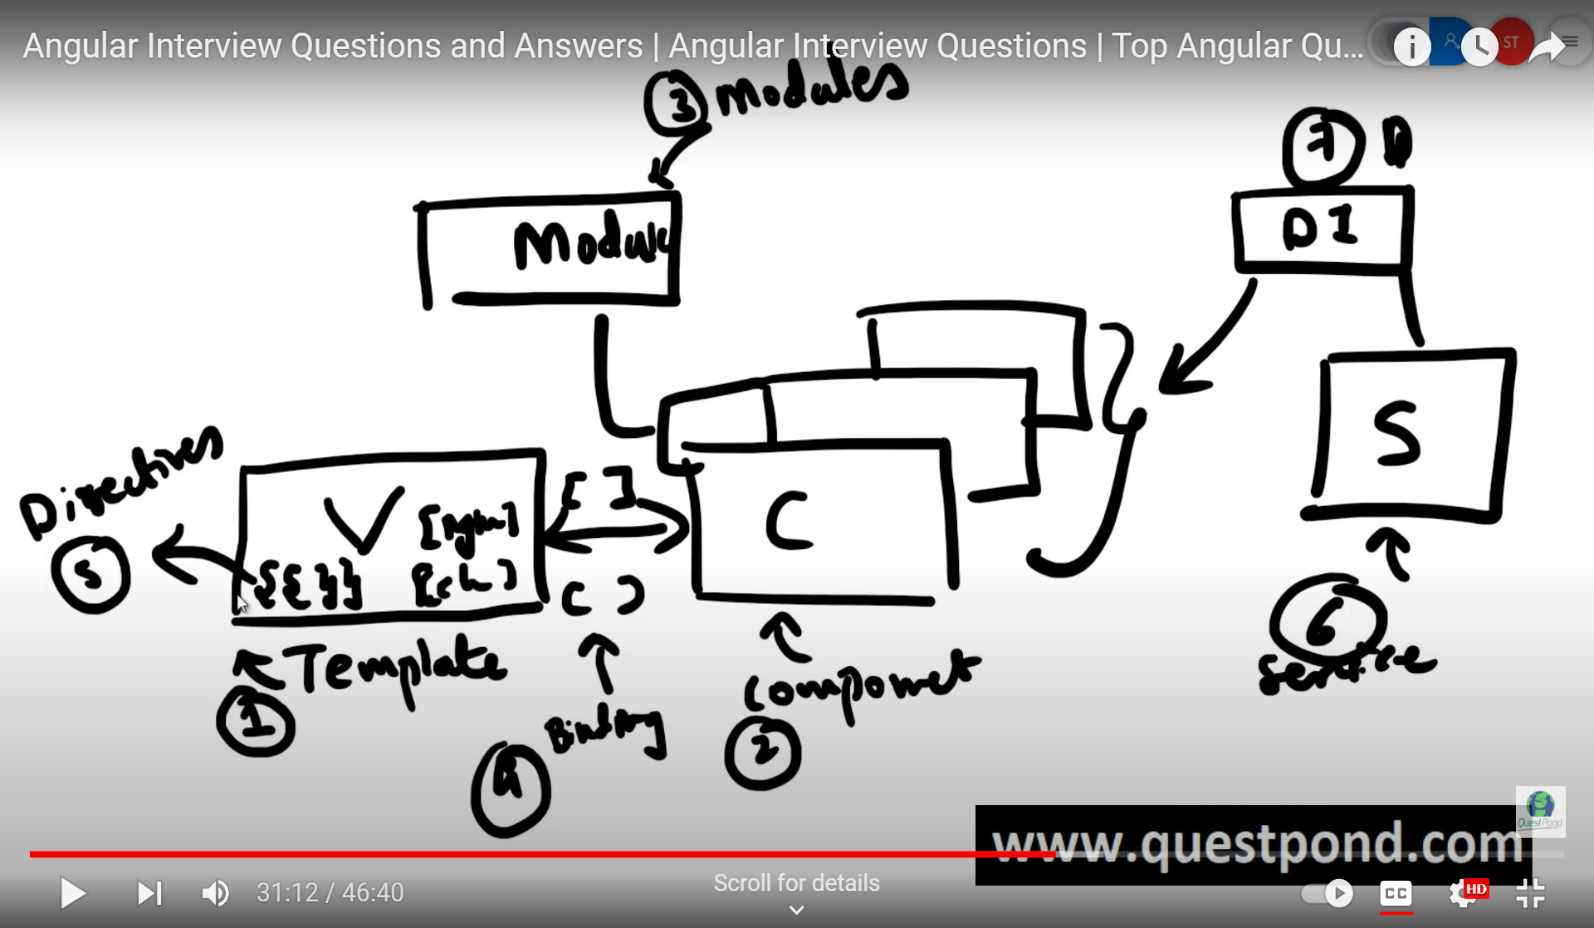 Angular Interview Questions and Answers | Angular Interview Questions | Top Angular Qu...
ST
3 Modules
7 D
DI
Module
S
Directives
5
V
{{ }}
[ ]
( )
C
Template
1
Binding
4
Componet
2
6
Service
QuestPond
www.questpond.com
31:12 / 46:40
Scroll for details
CC
HD